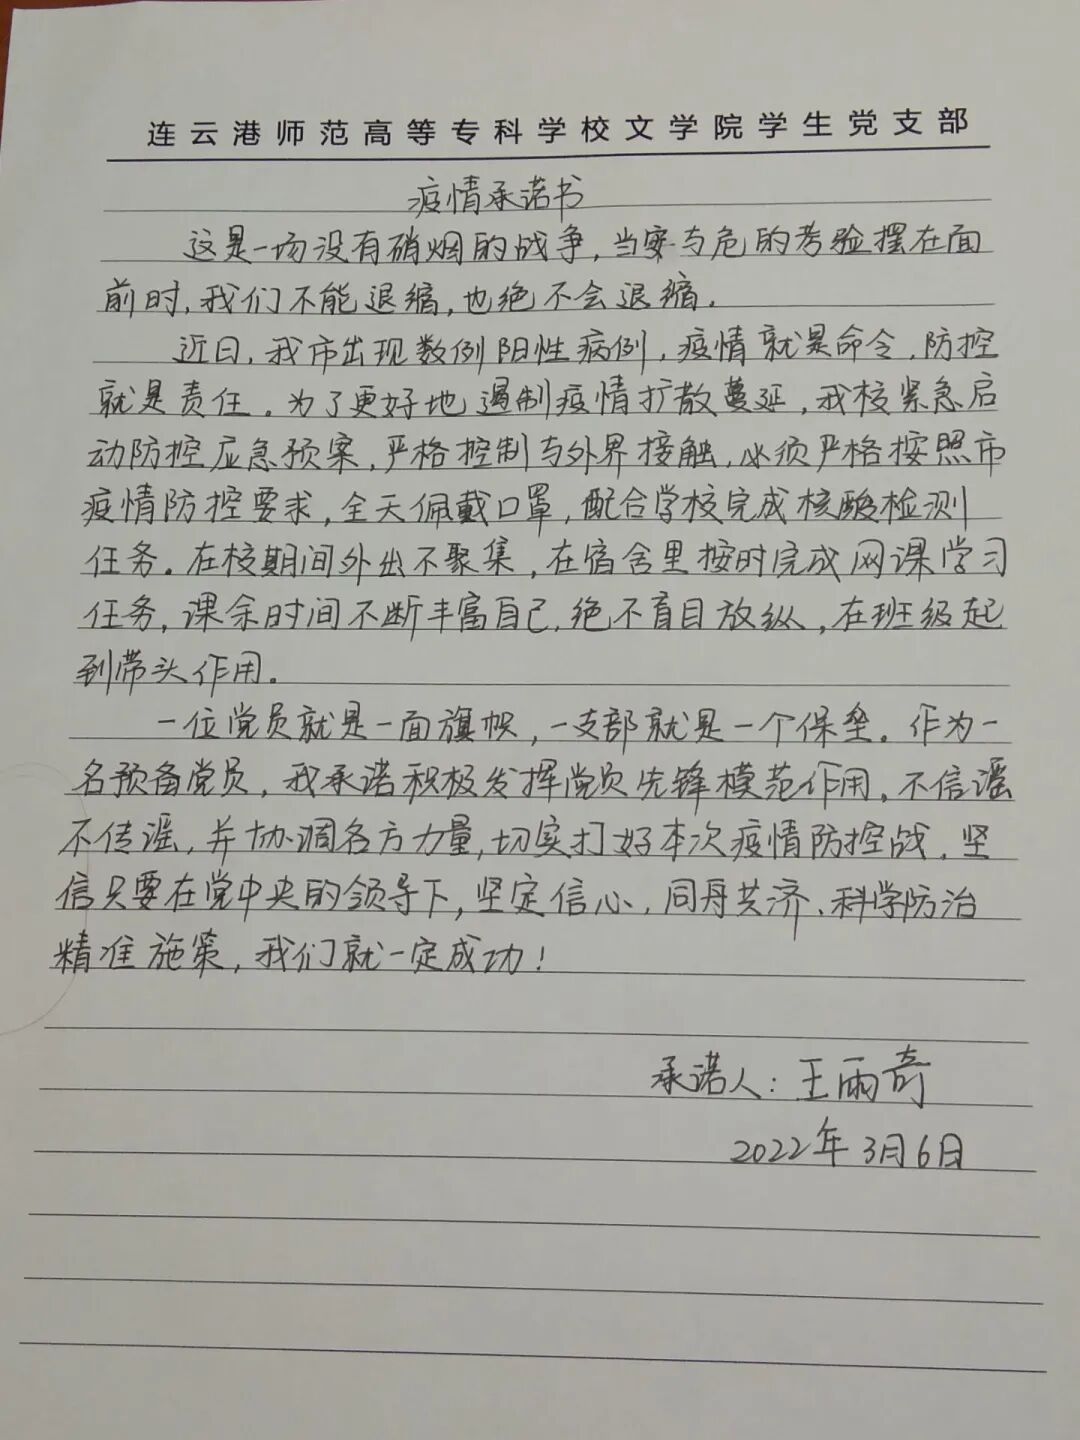 连云港师范高等专科学校文学院学生党支部
疫情承诺书
这是一场没有硝烟的战争，当安与危的考验摆在面
前时，我们不能退缩，也绝不会退缩．
近日，我市出现数例阳性病例，疫情就是命令，防控
就是责任。为了更好地遏制疫情扩散蔓延，我校紧急启
动防控应急预案，严格控制与外界接触，必须严格按照市
疫情防控要求，全天佩戴口罩，配合学校完成核酸检测
任务。在校期间外出不聚集，在宿舍里按时完成网课学习
任务，课余时间不断丰富自己，绝不盲目放纵，在班级起
到带头作用．
一位党员就是一面旗帜，一支部就是一个保垒。作为一
名预备党员，我承诺积极发挥党员先锋模范作用，不信谣
不传谣，并协调各方力量，切实打好本次疫情防控战，坚
信只要在党中央的领导下，坚定信心，同舟共济、科学防治
精准施策，我们就一定成功！
承诺人：王雨奇
2022年3月6日